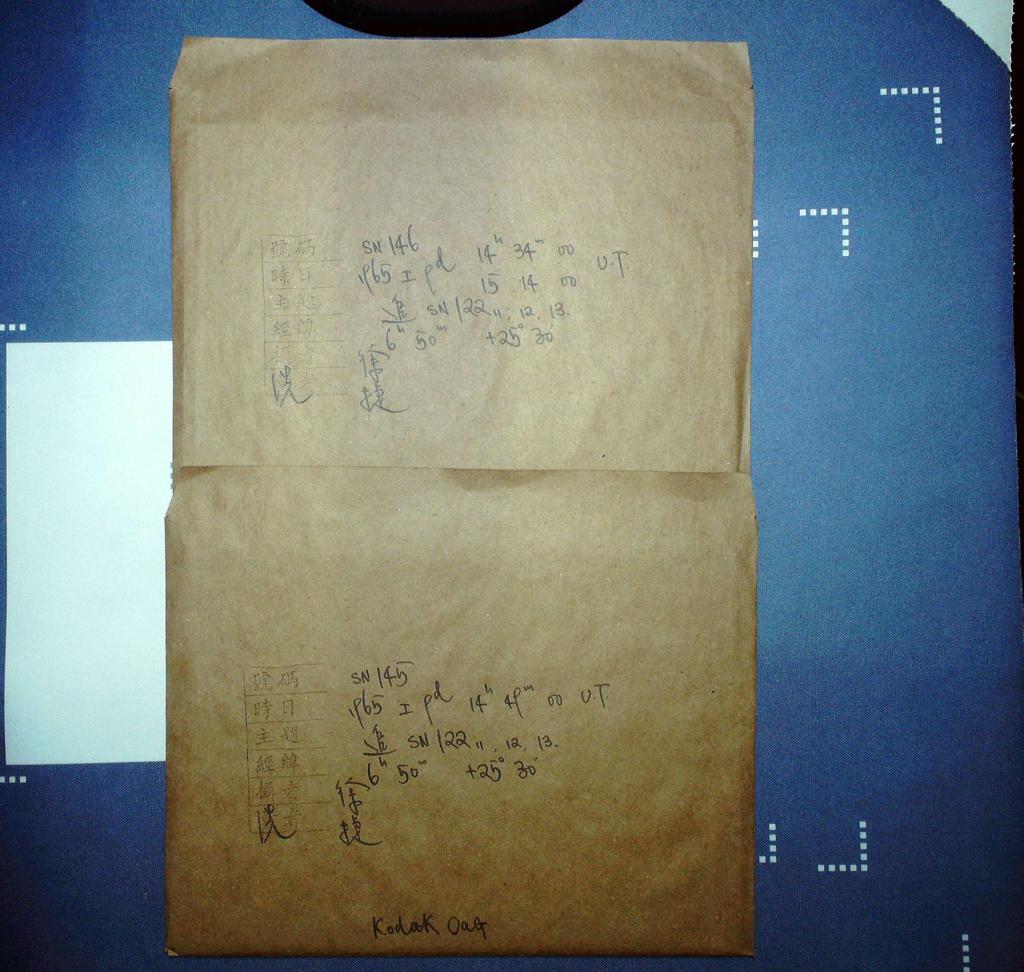 號碼 SN 146
時日 1965 I 9d 14h 34m 00 U.T.
15 14 00
主題 SN 122 11, 12, 13.
經緯 6h 50m +25° 30'
徐
洗
號碼 SN 145
時日 1965 I 9d 14h 49m 00 U.T.
主題 SN 122 11, 12, 13.
經緯 6h 50m +25° 30'
攝者 徐
洗者
Kodak OaG